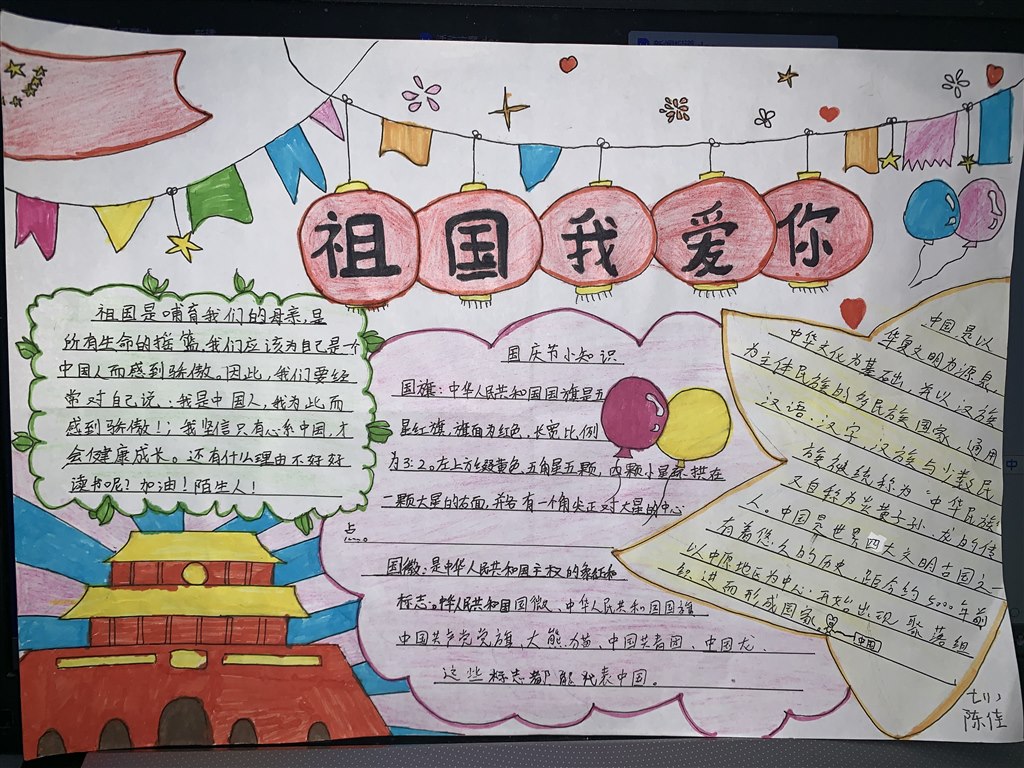 祖国我爱你
祖国是哺育我们的母亲,是
所有生命的摇篮,我们应该为自己是一个
中国人而感到骄傲。因此,我们要经
常对自己说:我是中国人,我为此而
感到骄傲!;我坚信只有心系中国,才
会健康成长。还有什么理由不好好
读书呢?加油!陌生人!
国庆节小知识
国旗:中华人民共和国国旗是五
星红旗,旗面为红色,长宽比例
为3:2。左上方缀黄色五角星五颗,四颗小星环拱在
一颗大星的右面,并各有一个角尖正对大星的中心
点
国徽:是中华人民共和国主权的象征和
标志。中华人民共和国国徽、中华人民共和国国旗
中国共产党党旗、大熊猫、中国共青团、中国龙、
这些标志都能代表中国。
中国是以
华夏文明为源泉、
中华文化为基础,并以汉族
为主体民族的多民族国家,通用
汉语、汉字,汉族与少数民
族被统称为“中华民族”
又自称为炎黄子孙、龙的传
人。中国是世界四大文明古国之一
有着悠久的历史,距今约5000年前
以中原地区为中心开始出现聚落组
织进而形成国家。
中国
陈佳